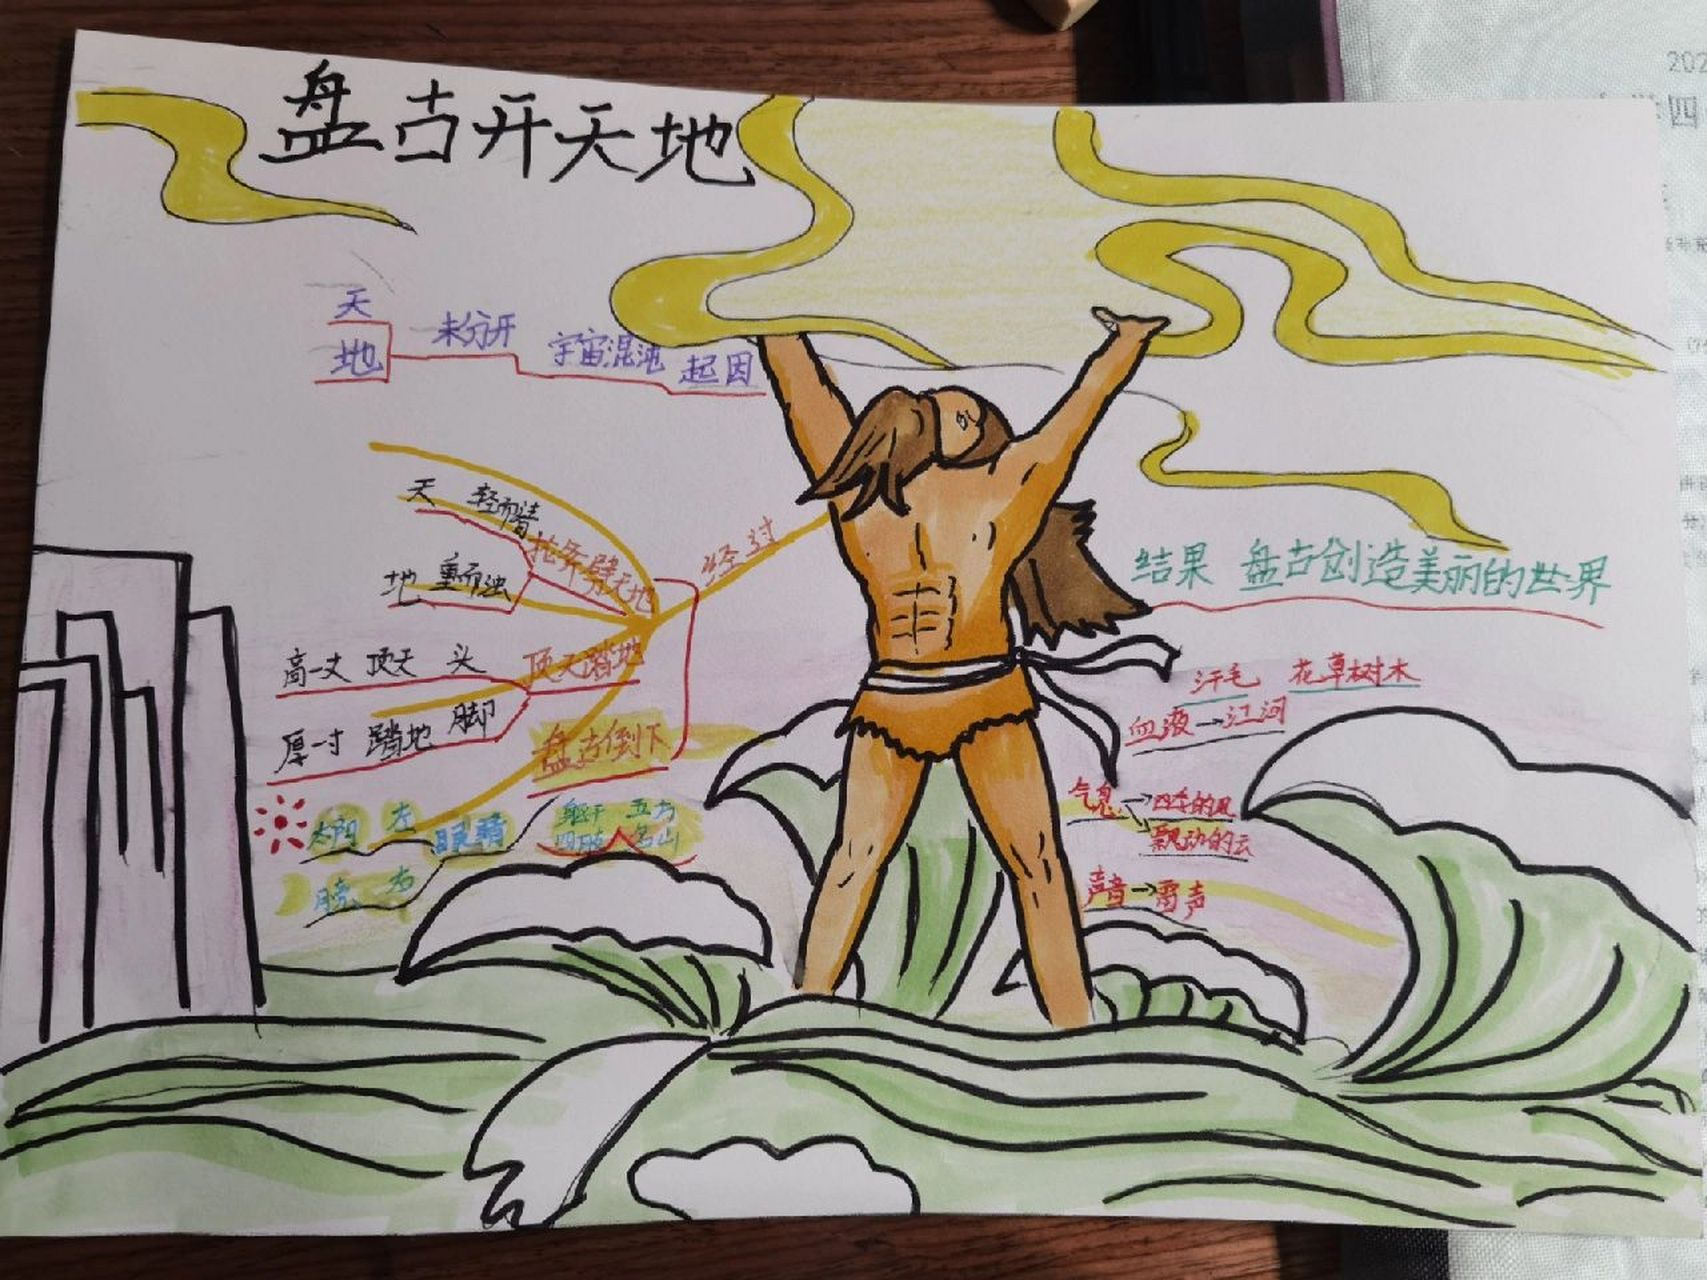 盘古开天地
天
地
未分开
宇宙混沌
起因
经过
抡斧劈天地
天 轻而清
地 重而浊
顶天踏地
高一丈 顶天 头
厚一寸 踏地 脚
盘古倒下
太阳 左 眼睛
右
躯干 五方
四肢 名山
结果 盘古创造美丽的世界
汗毛 花草树木
血液→江河
气息→四季的风
飘动的云
声音→雷声
202
四